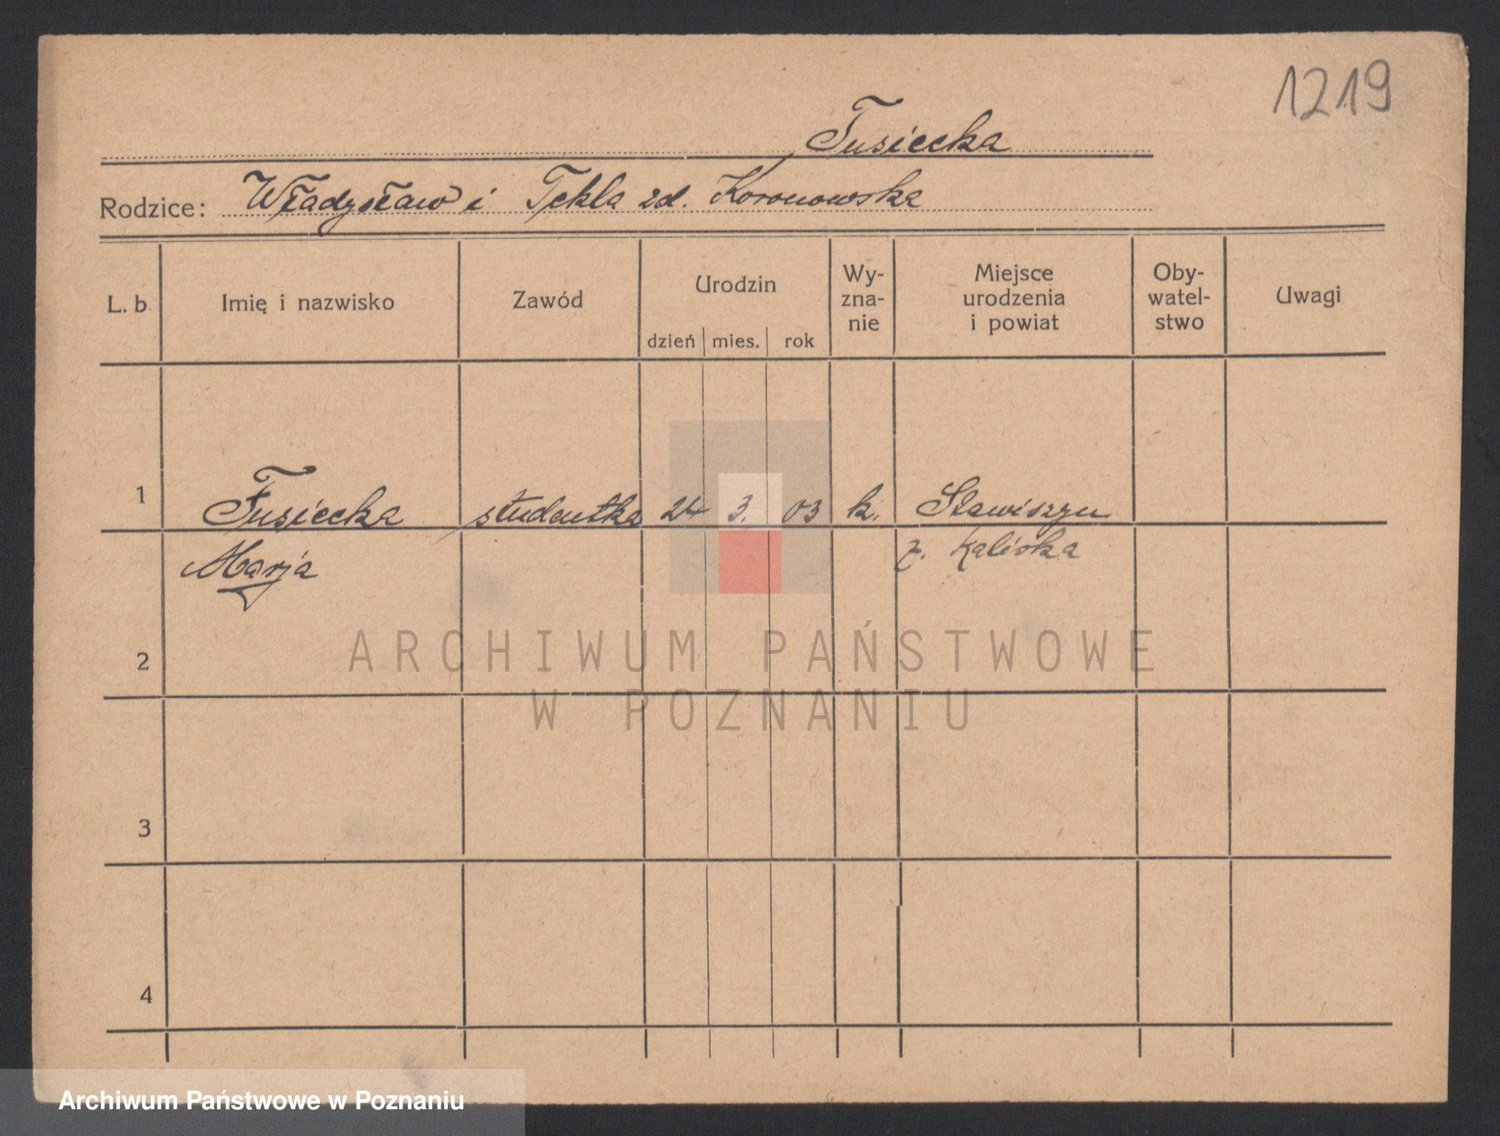 1219
Tusiecka
Rodzice: Władysław i Tekla zd. Koronowska
L. b. Imię i nazwisko Zawód Urodzin dzień mies. rok Wy-zna-nie Miejsce urodzenia i powiat Oby-watel-stwo Uwagi
1 Tusiecka studentka 24 3. 03 k. Stawiszyn
Marja z. Kaliska
2
ARCHIWUM PAŃSTWOWE
W POZNANIU
3
4
Archiwum Państwowe w Poznaniu